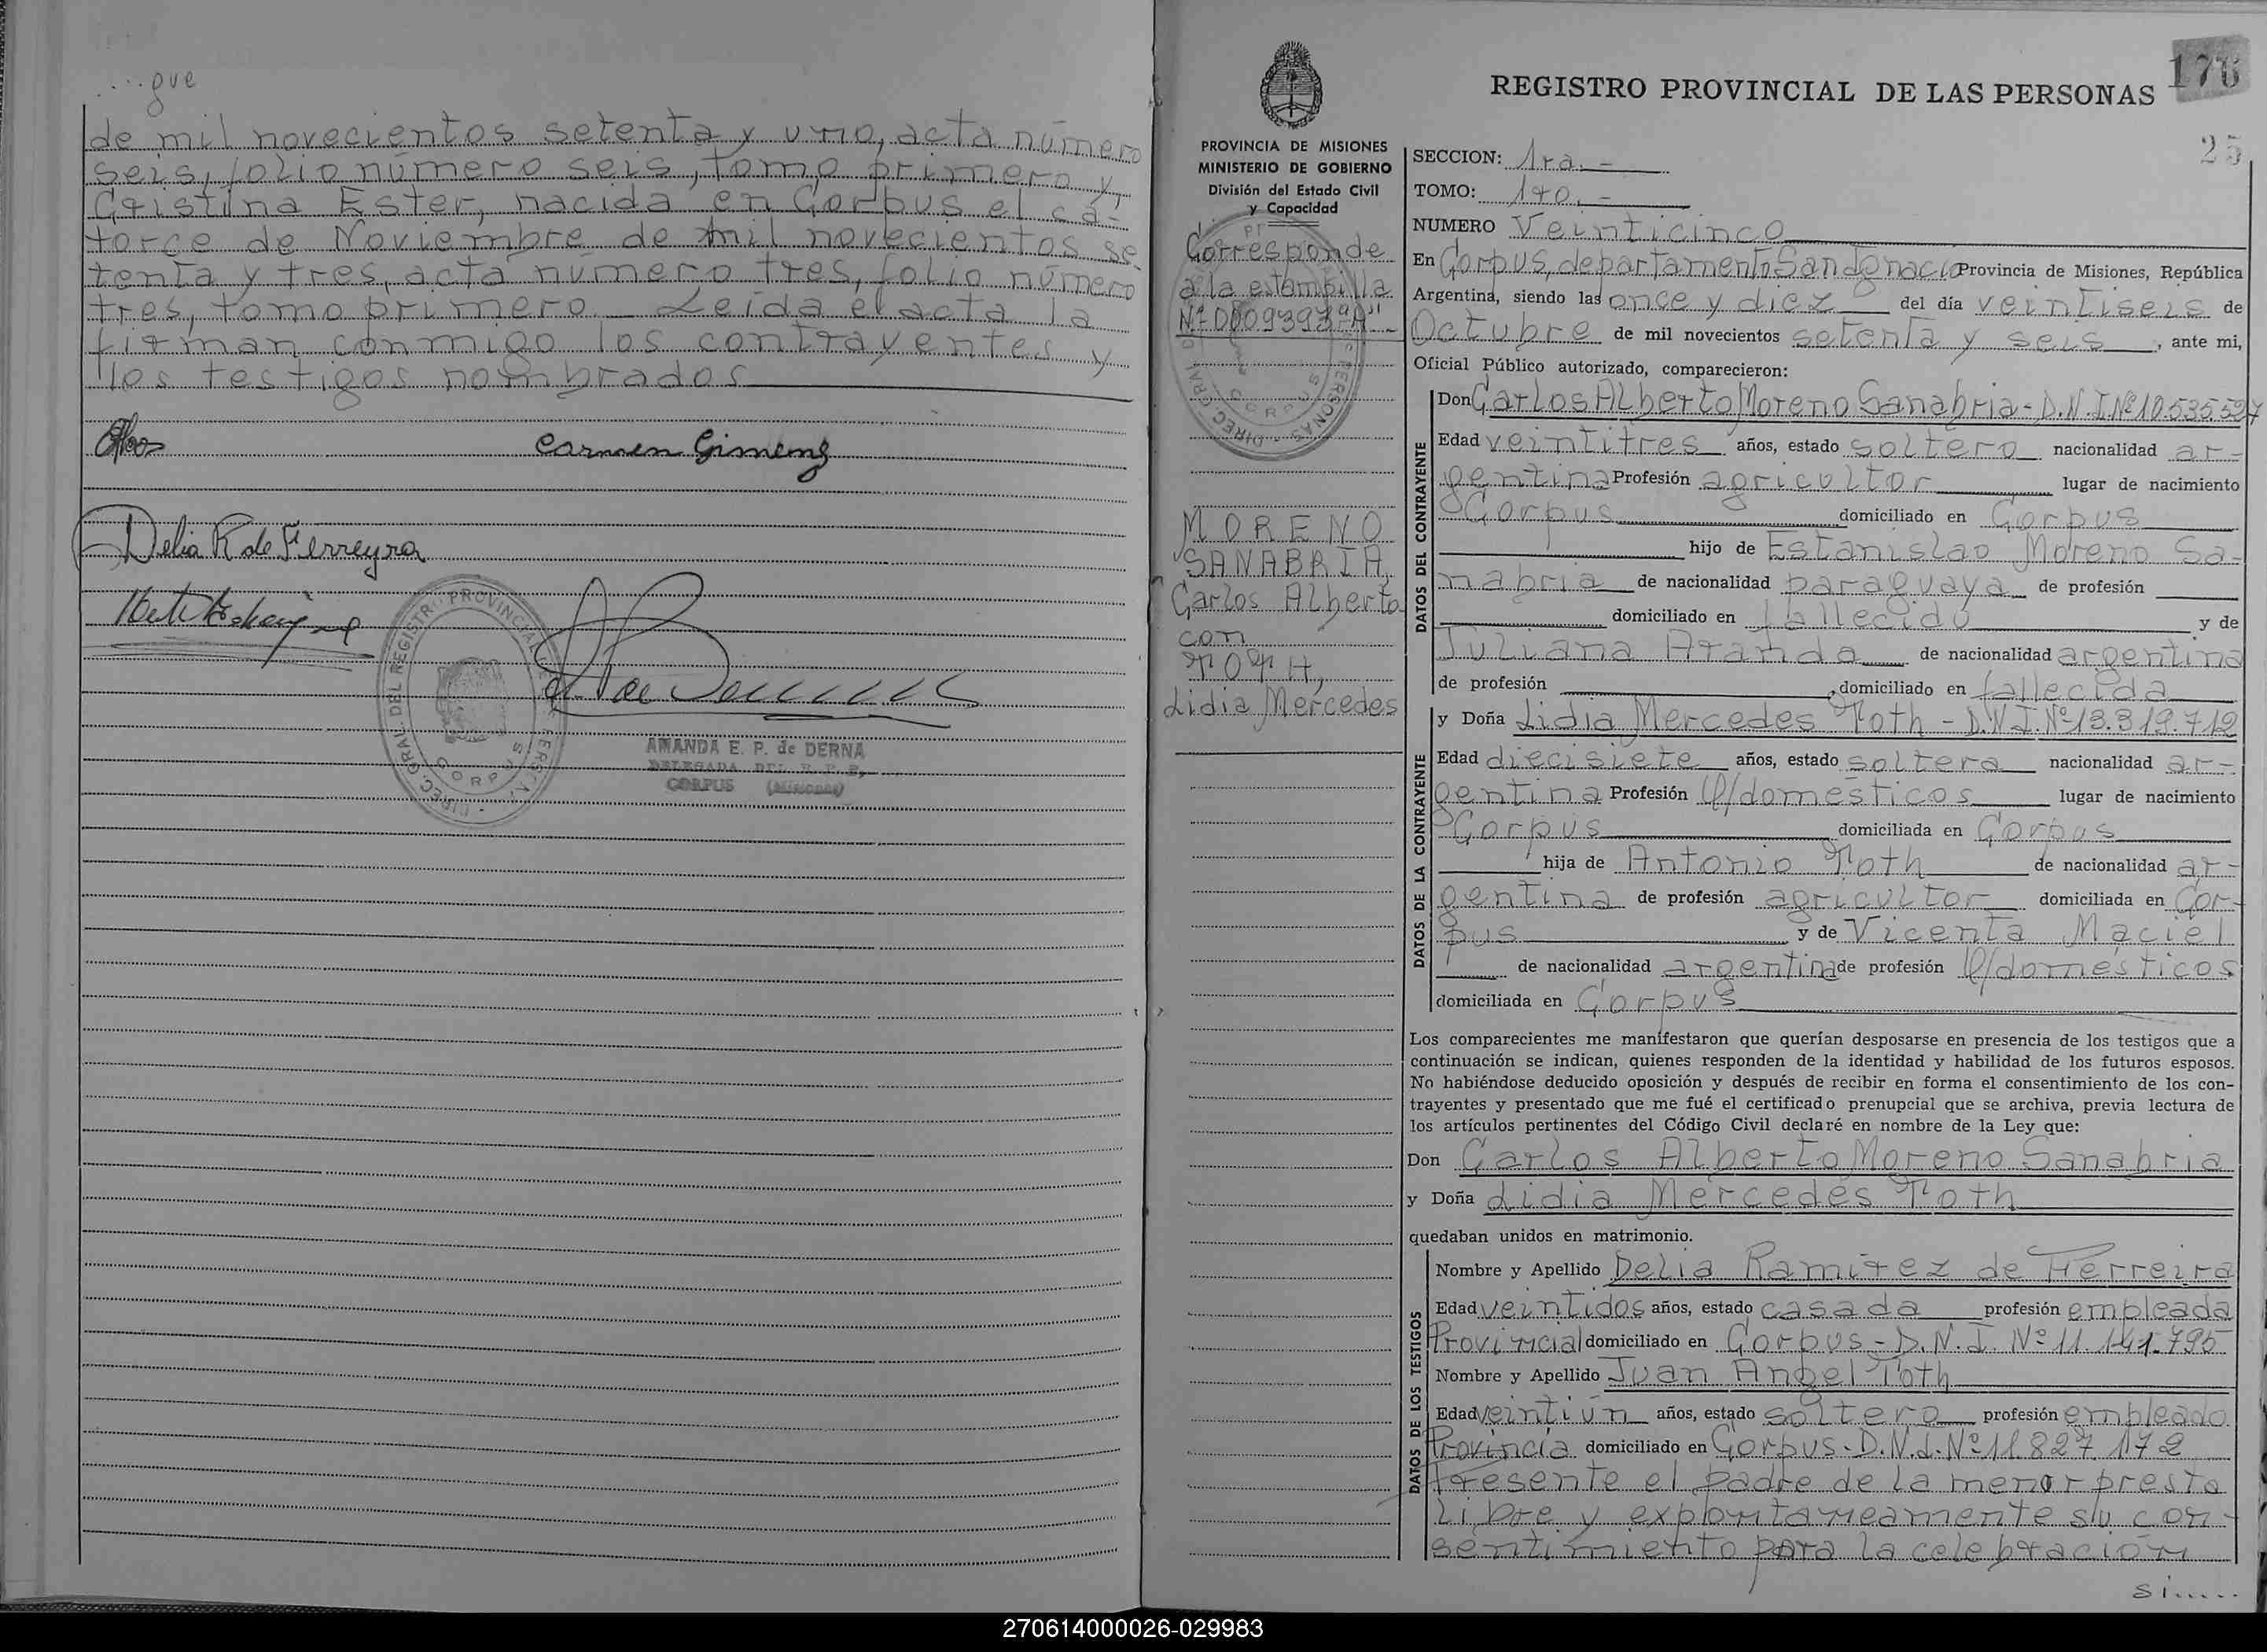 ....gue
de mil novecientos setenta y uno, acta número
seis, folio número seis, tomo primero y,
Cristina Ester, nacida en Corpus el ca-
torce de Noviembre de mil novecientos se-
tenta y tres, acta número tres, folio número
tres, tomo primero._ Leída el acta la
firman conmigo los contrayentes y
los testigos nombrados
Carmen Gimenz
Delia R de Ferreyra
DIREC. GRAL. DEL REGISTRO PROVINCIAL DE PERSONAS
CORPUS
AMANDA E. P. de DERNA
DELEGADA DEL R. P. P.
CORPUS (Misiones)
REGISTRO PROVINCIAL DE LAS PERSONAS
176
25
PROVINCIA DE MISIONES
MINISTERIO DE GOBIERNO
División del Estado Civil
y Capacidad
Corresponde
a la estampilla
Nº 0009397"A"
MORENO
SANABRIA,
Carlos Alberto
con
TOTH,
Lidia Mercedes
SECCION: 1ra.-
TOMO: 1º.-
NUMERO Veinticinco
En Corpus, departamento San Ignacio Provincia de Misiones, República
Argentina, siendo las once y diez del día veintiseis de
Octubre de mil novecientos setenta y seis, ante mi,
Oficial Público autorizado, comparecieron:
DATOS DEL CONTRAYENTE
Don Carlos Alberto Moreno Sanabria - D.N.I.Nº10.535.527
Edad veintitres años, estado soltero nacionalidad ar-
gentina Profesión agricultor lugar de nacimiento
Corpus domiciliado en Corpus
hijo de Estanislao Moreno Sa-
nabria de nacionalidad paraguaya de profesión
domiciliado en fallecido y de
Juliana Aranda de nacionalidad argentina
de profesión , domiciliado en fallecida
DATOS DE LA CONTRAYENTE
y Doña Lidia Mercedes Toth - D.N.I.Nº13.319.712
Edad diecisiete años, estado soltera nacionalidad ar-
gentina Profesión Q/domésticos lugar de nacimiento
Corpus domiciliada en Corpus
hija de Antonio Toth de nacionalidad ar-
gentina de profesión agricultor domiciliada en Cor-
pus y de Vicenta Maciel
de nacionalidad argentina de profesión Q/domésticos
domiciliada en Corpus
Los comparecientes me manifestaron que querían desposarse en presencia de los testigos que a
continuación se indican, quienes responden de la identidad y habilidad de los futuros esposos.
No habiéndose deducido oposición y después de recibir en forma el consentimiento de los con-
trayentes y presentado que me fué el certificado prenupcial que se archiva, previa lectura de
los artículos pertinentes del Código Civil declaré en nombre de la Ley que:
Don Carlos Alberto Moreno Sanabria
y Doña Lidia Mercedes Toth
quedaban unidos en matrimonio.
DATOS DE LOS TESTIGOS
Nombre y Apellido Delia Ramirez de Ferreira
Edad veintidos años, estado casada profesión empleada
Provincial domiciliado en Corpus - D.N.I. Nº 11.141.795
Nombre y Apellido Juan Angel Toth
Edad veintiún años, estado soltero profesión empleado
Provincia domiciliado en Corpus - D.N.I. Nº11.827.172
Presente el padre de la menor presta
libre y expontaneamente su con-
sentimiento para la celebración
si.....
270614000026-029983